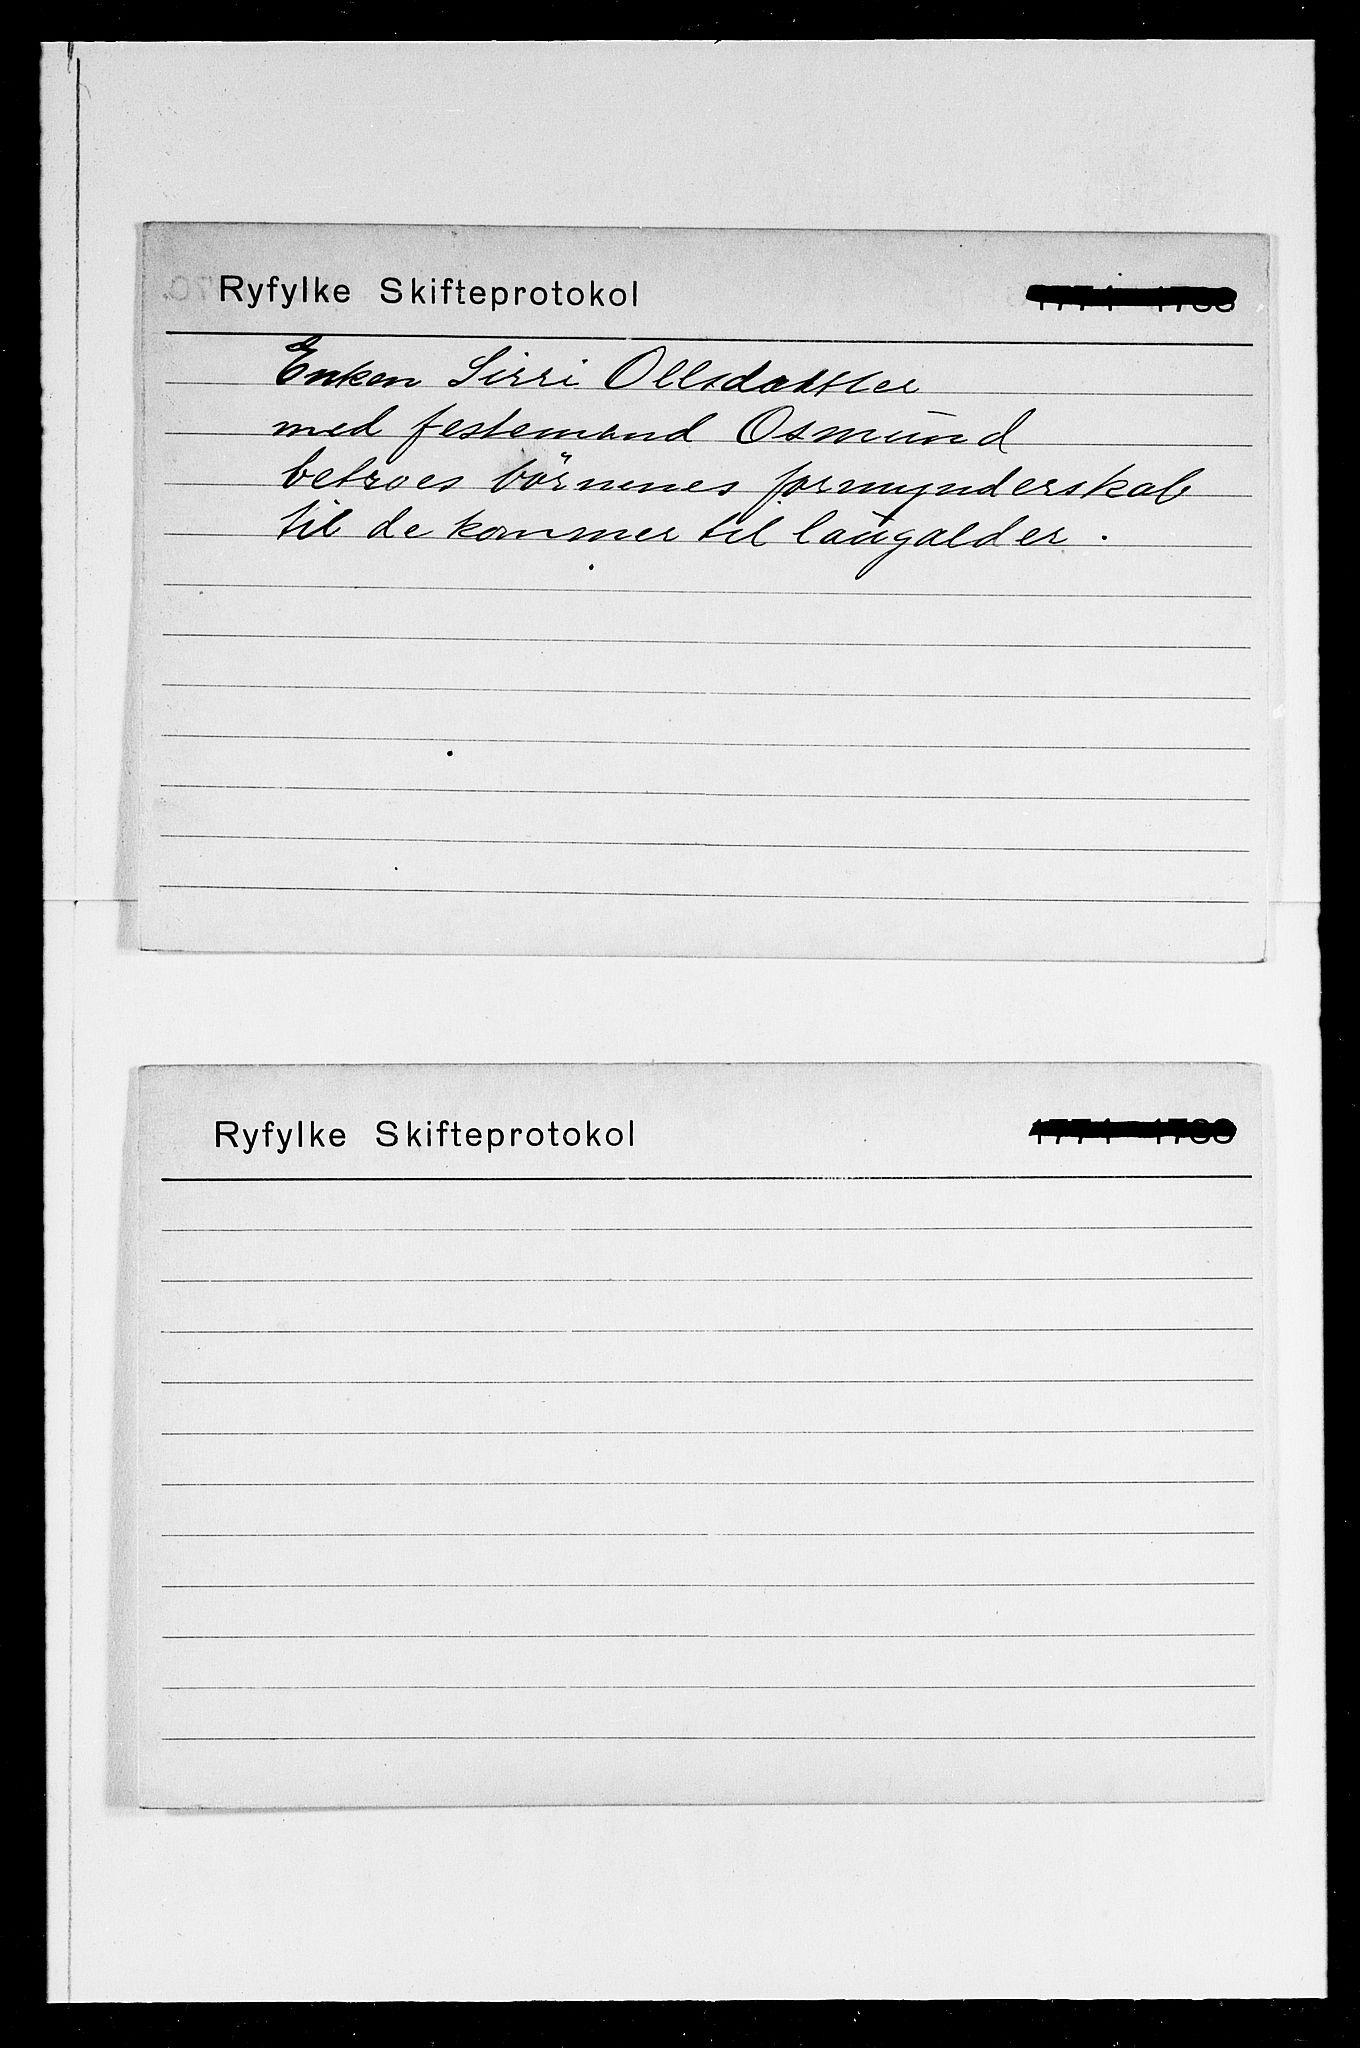 Ryfylke Skifteprotokol
Enken Sirri Ollsdatter
med festemand Osmund
betroes börnenes formynderskab
til de kommer til laugalder.
Ryfylke Skifteprotokol